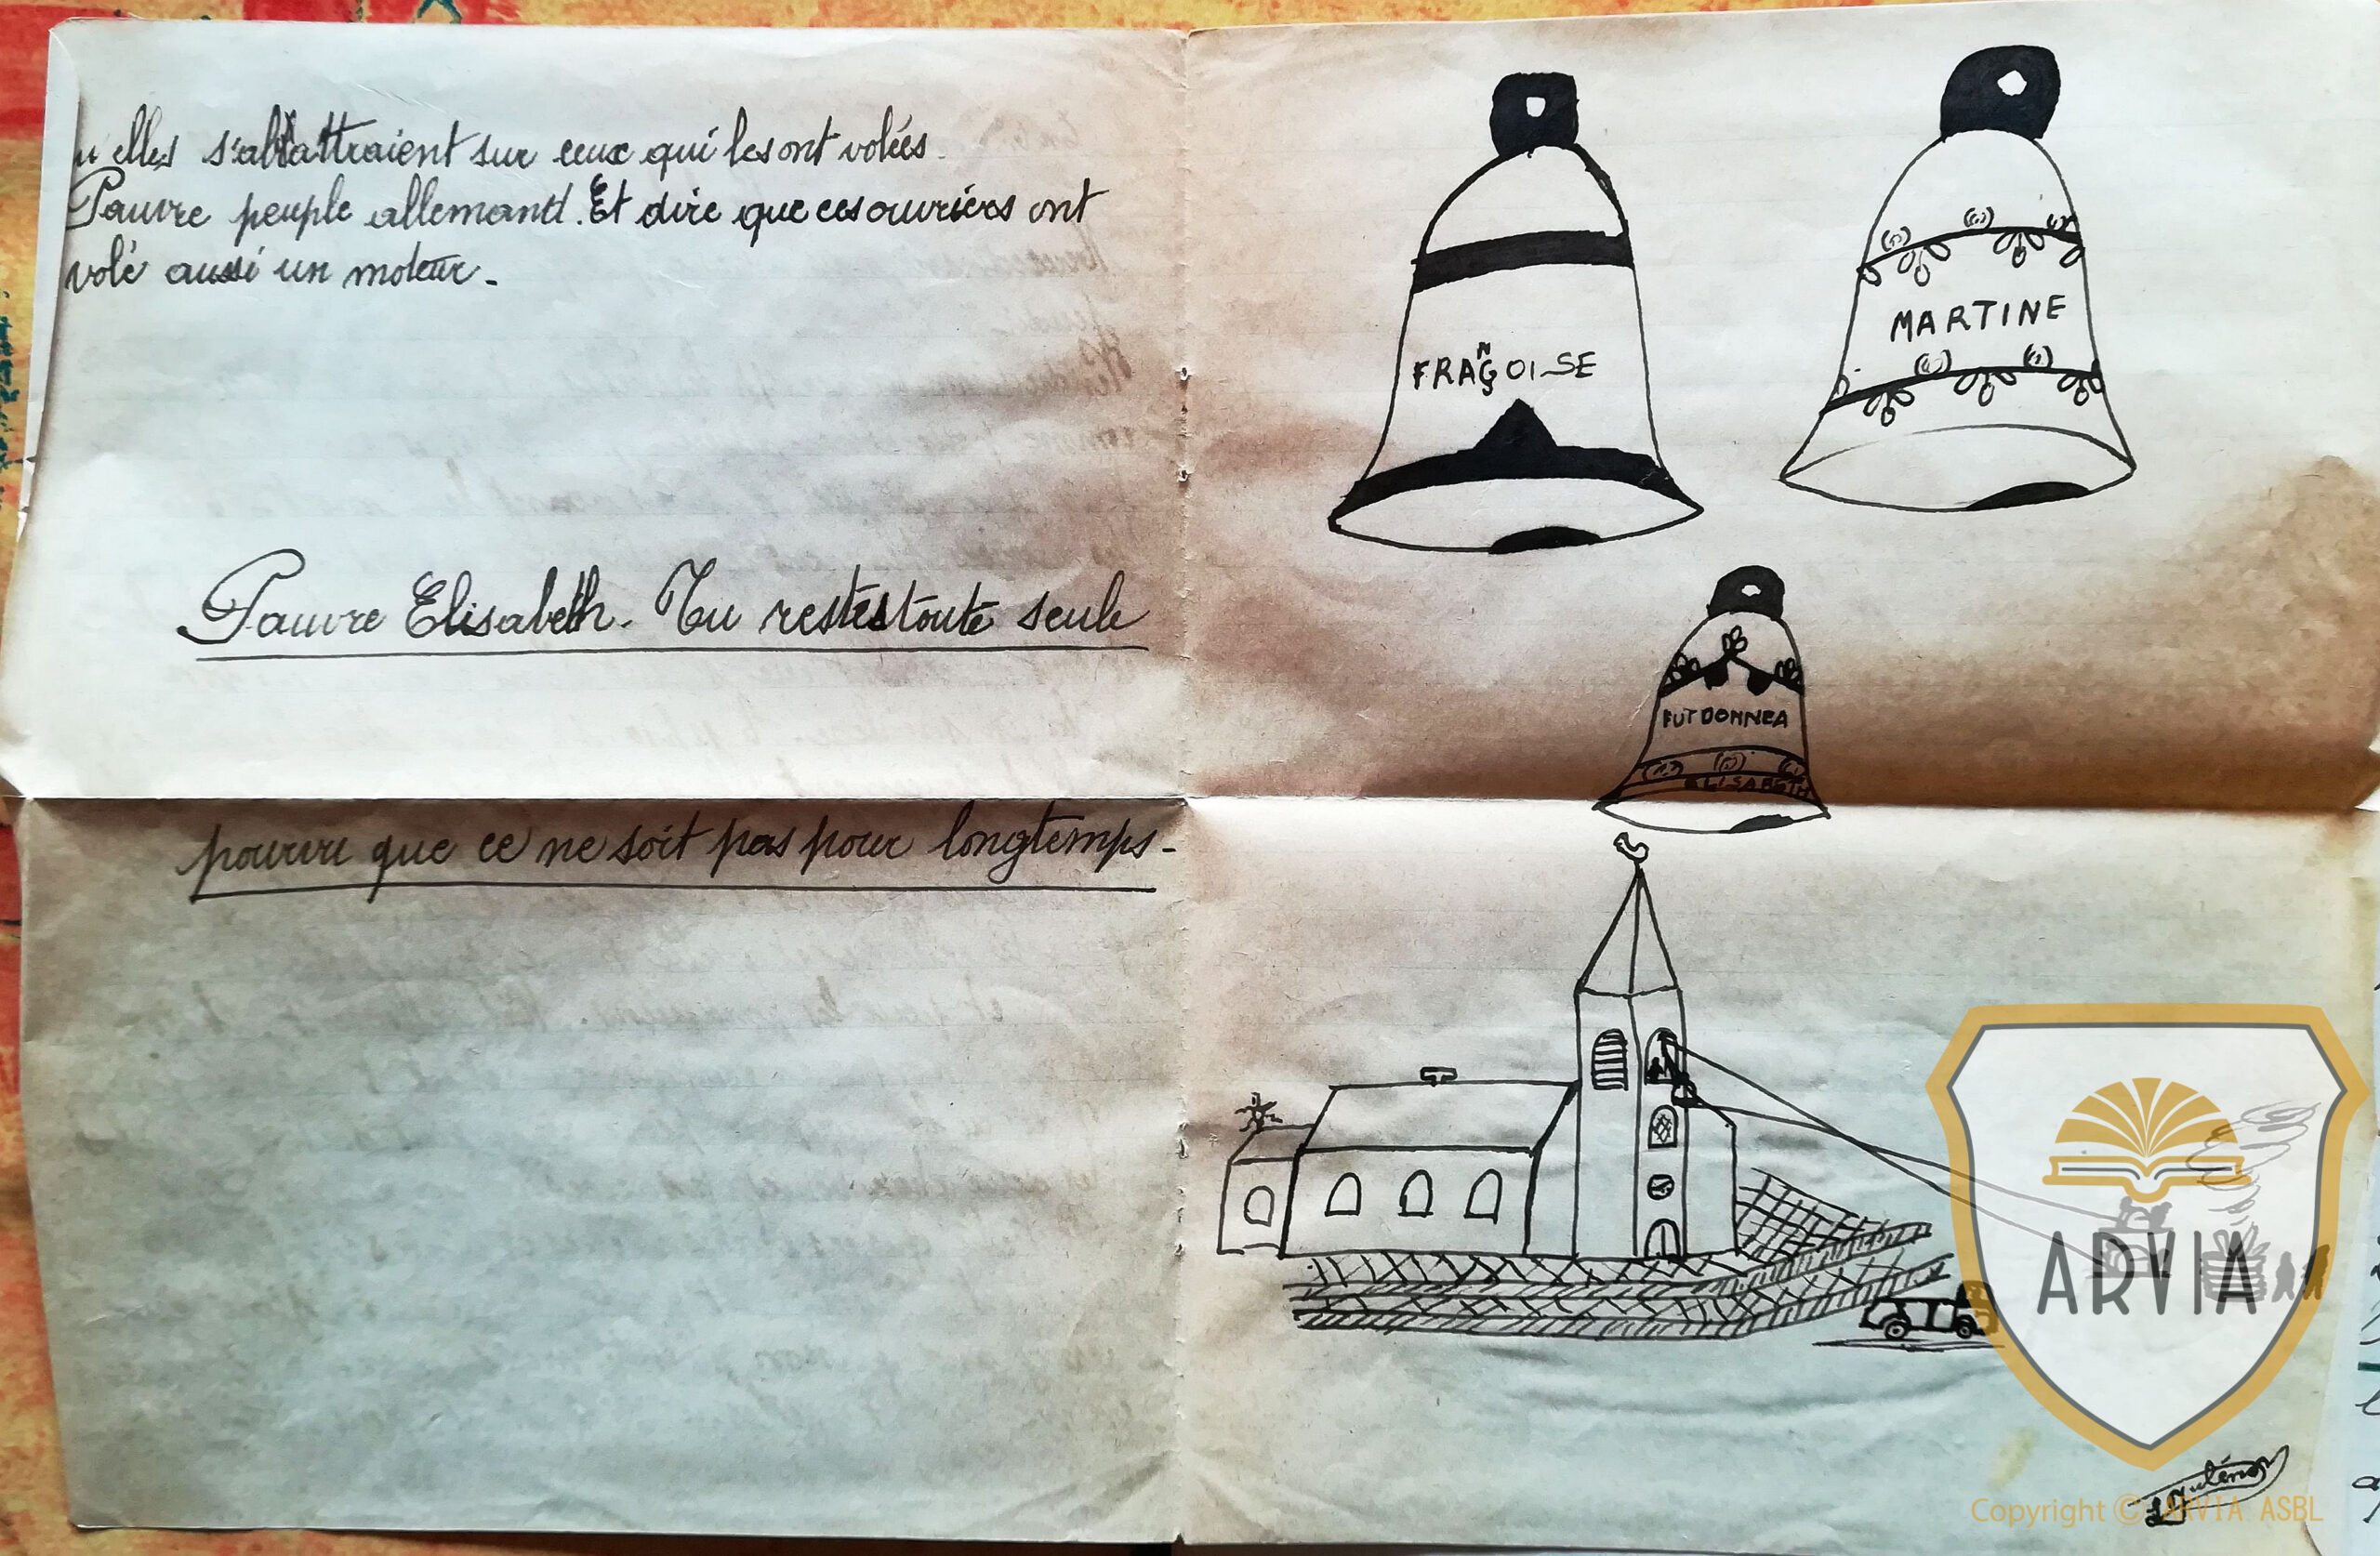 u'elles s'abbattraient sur ceux qui les ont volées.
Pauvre peuple allemand. Et dire que ces ouvriers ont
volé aussi un moteur.
Pauvre Elisabeth. Tu restes toute seule
pourvu que ce ne soit pas pour longtemps.
FRANÇOISE
MARTINE
FUT DONNEA
ELISABETH
ARVIA
Copyright © ARVIA ASBL